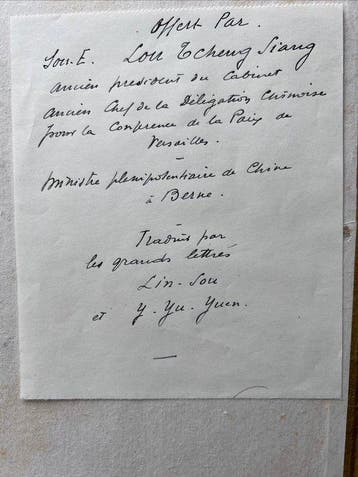 Offert Par.
Son. E. Lou Tcheng Siang
ancien président du Cabinet
ancien Chef de la Délégation Chinoise
pour la Conference de la Paix de
Versailles.
-
Ministre plenipotentiaire de Chine
à Berne.
Traduit par
les grands lettrés
Lin-Sou
et Y-Yu-Yuen.